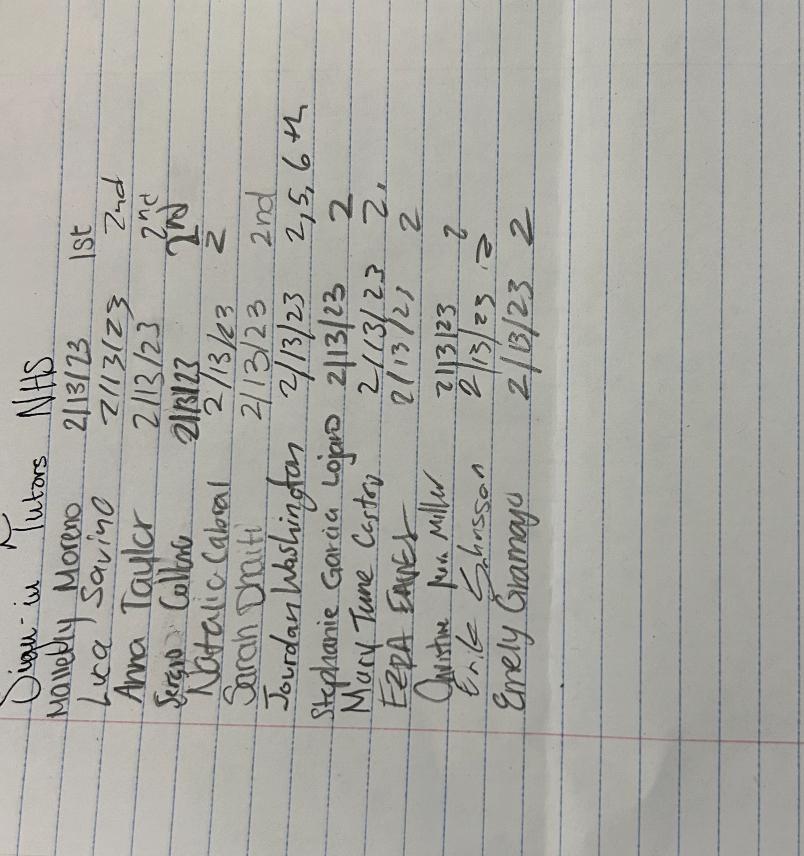 Sign-in Tutors NHS
Moreno 2/13/23 1st
Luca Savino 2/13/23 2nd
Anna Taylor 2/13/23 2nd
Sergio 2/13/23 2nd
Natalie Cabral 2/13/23 2
Sarah Dhaiti 2/13/23 2nd
Jourdan Washington 2/13/23 2,5,6th
Stephanie Garcia Lojano 2/13/23 2
Mary June Castro 2/13/23 2,
EZRA 2/13/2, 2
Miller 2/13/23 2
Erik 2/13/23 2
Emely Gramayo 2/13/23 2